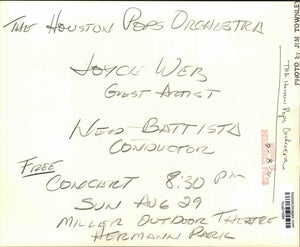 THE HOUSTON POPS ORCHESTRA
JOYCE WEB
GUEST ARTIST
NED BATTISTA
CONDUCTOR
FREE
CONCERT 8:30 PM
SUN AUG 29
MILLER OUTDOOR THEATRE
HERMANN PARK
PHOTO BY JIM TOWNLEY